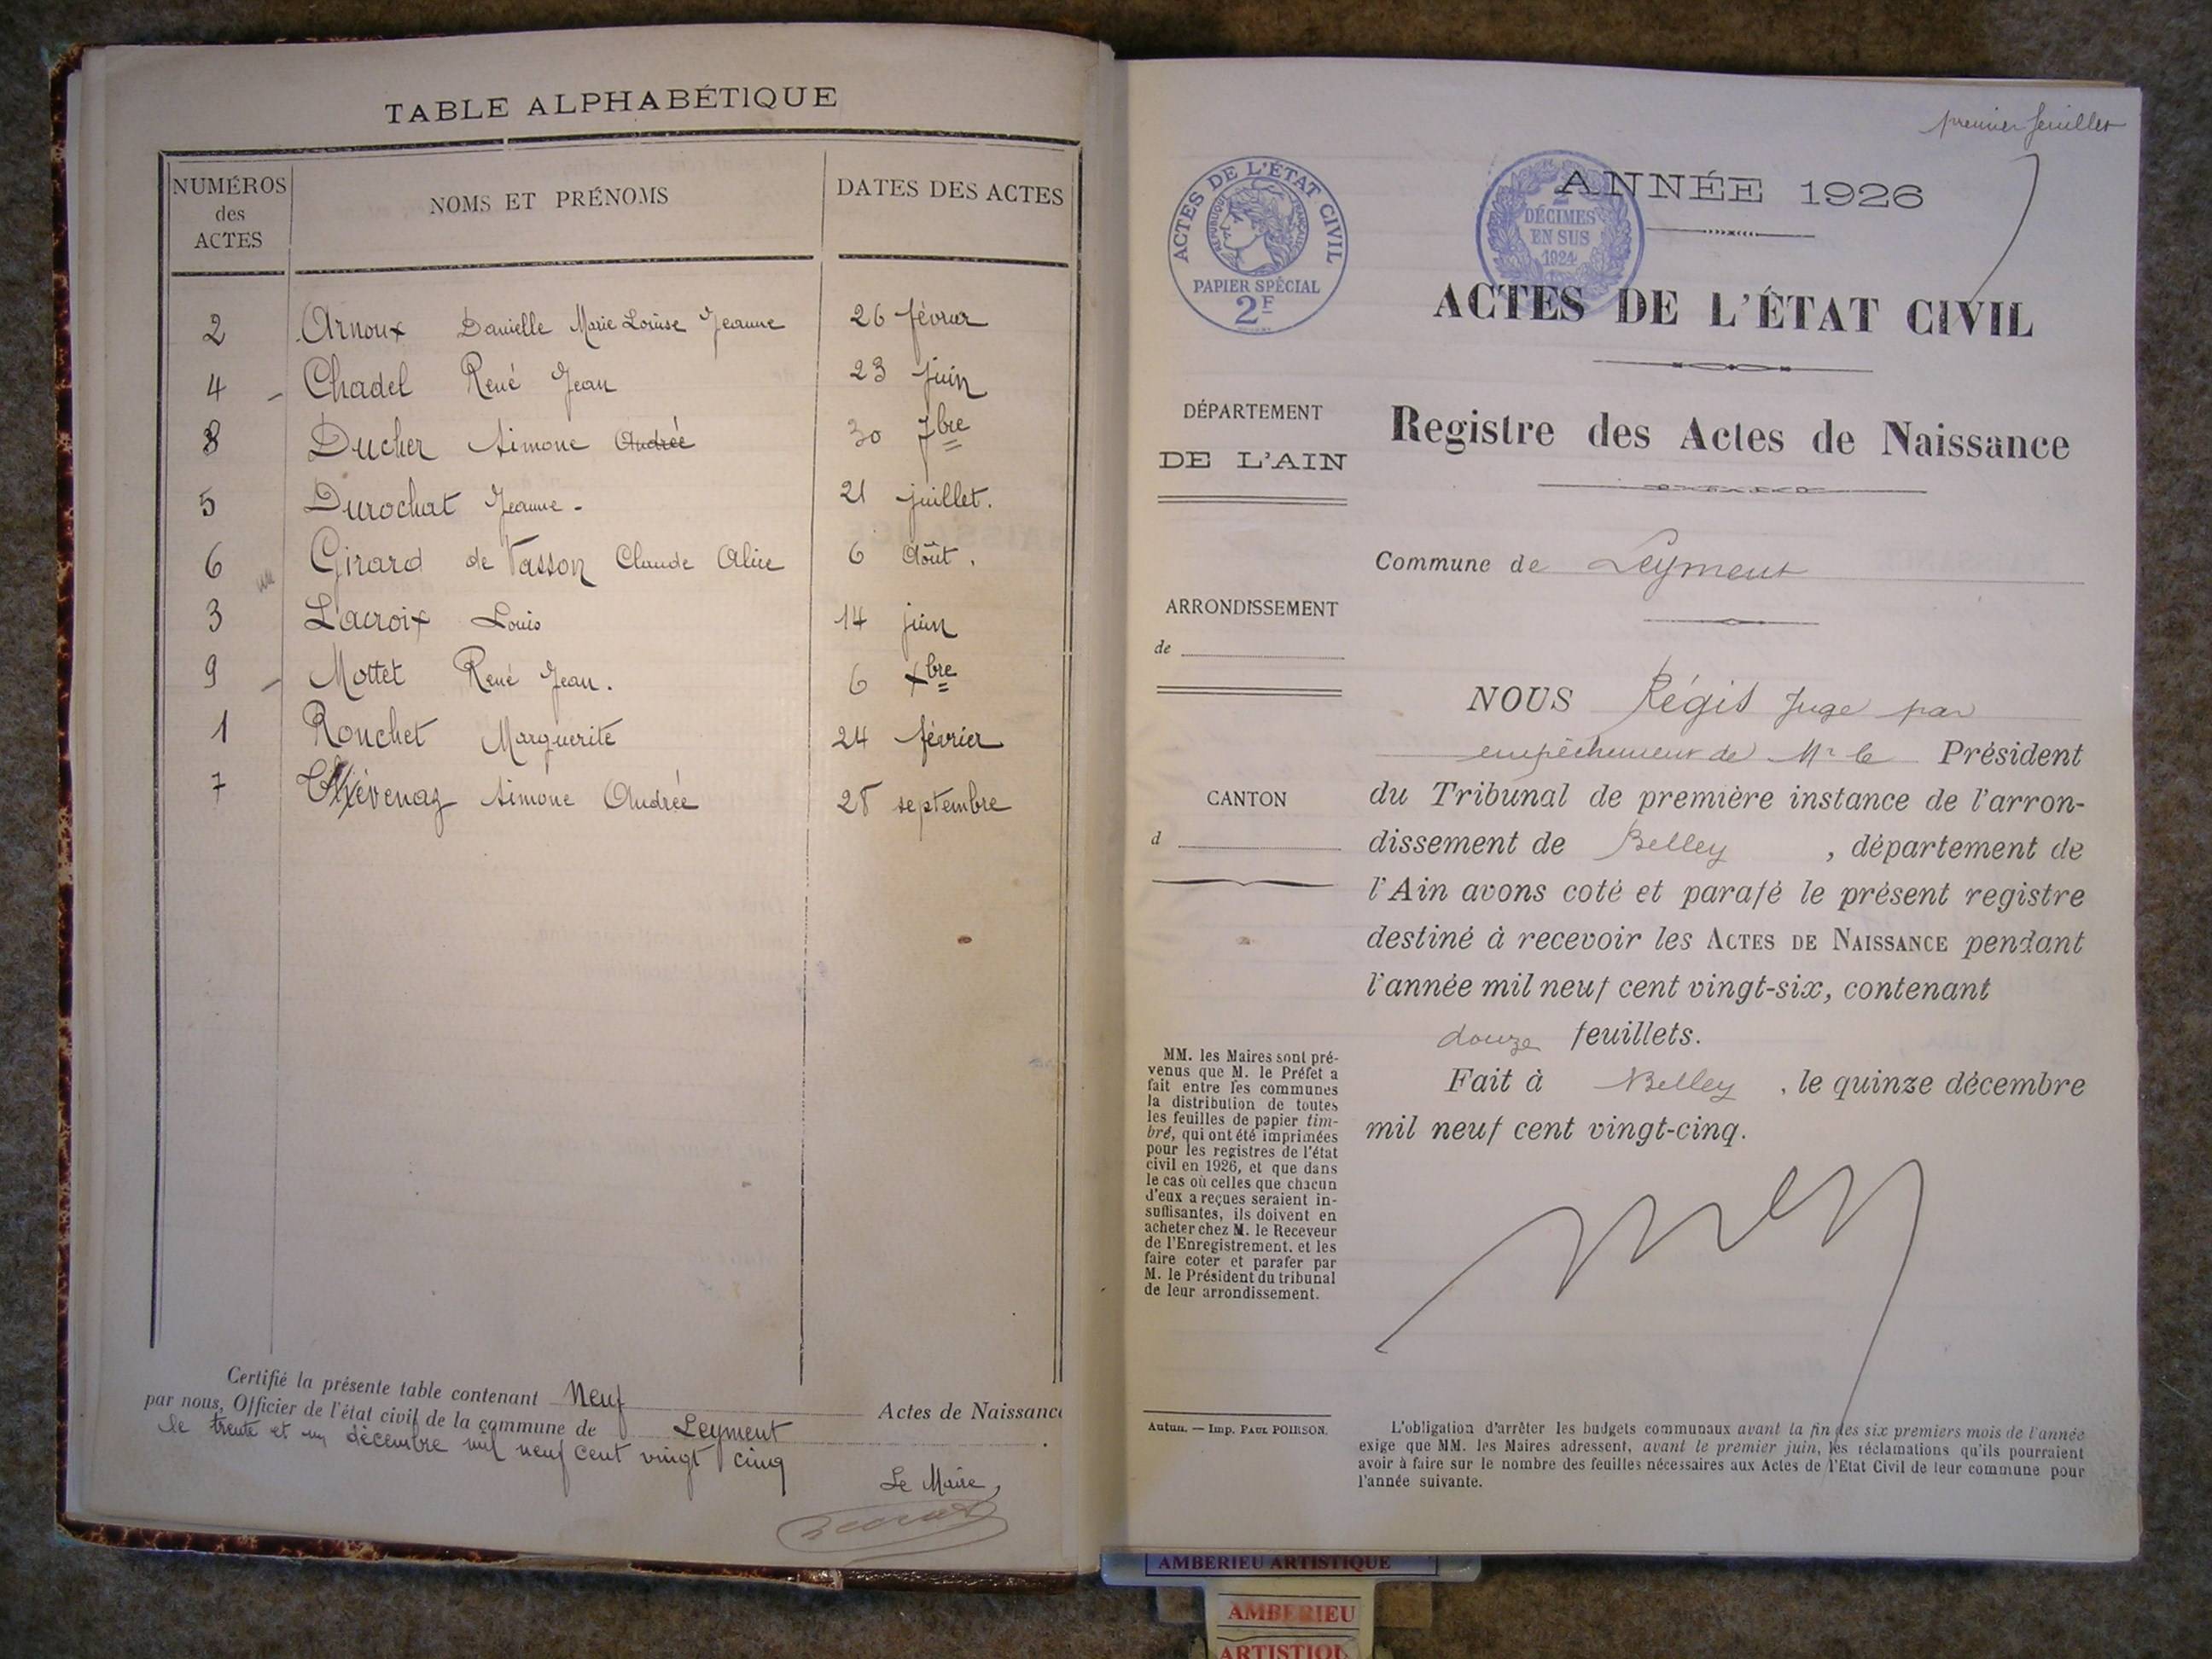 TABLE ALPHABÉTIQUE
NUMÉROS des ACTES NOMS ET PRÉNOMS DATES DES ACTES
2 Arnoux Danielle Marie Louise Jeanne 26 février
4 - Chadel René Jean 23 juin
8 Ducher Simone Andrée 30 7bre
5 Durochat Jeanne - 21 juillet.
6 Girard de Vasson Claude Alice 6 Août.
3 Lacroix Louis 14 juin
9 - Mottet René Jean. 6 xbre
1 Ronchet Marguerite 24 février
7 Thévenaz Simone Andrée 28 septembre
Certifié la présente table contenant Neuf Actes de Naissance
par nous, Officier de l'état civil de la commune de Leyment
le trente et un décembre mil neuf cent vingt cinq
Le Maire,
premier feuillet
ACTES DE L'ÉTAT CIVIL
RÉPUBLIQUE FRANÇAISE
PAPIER SPÉCIAL
2F
2 DÉCIMES
EN SUS
1924
ANNÉE 1926
ACTES DE L'ÉTAT CIVIL
DÉPARTEMENT
DE L'AIN
ARRONDISSEMENT
de
CANTON
d
MM. les Maires sont pré-
venus que M. le Préfet a
fait entre les communes
la distribution de toutes
les feuilles de papier tim-
bré, qui ont été imprimées
pour les registres de l'état
civil en 1926, et que dans
le cas où celles que chacun
d'eux a reçues seraient in-
suffisantes, ils doivent en
acheter chez M. le Receveur
de l'Enregistrement, et les
faire coter et parafer par
M. le Président du tribunal
de leur arrondissement.
Autun. — Imp. PAUL POIRSON.
Registre des Actes de Naissance
Commune de Leyment
NOUS Régis Juge par
empêchement de Mr le Président
du Tribunal de première instance de l'arron-
dissement de Belley, département de
l'Ain avons coté et parafé le présent registre
destiné à recevoir les ACTES DE NAISSANCE pendant
l'année mil neuf cent vingt-six, contenant
douze feuillets.
Fait à Belley, le quinze décembre
mil neuf cent vingt-cinq.
L'obligation d'arrêter les budgets communaux avant la fin des six premiers mois de l'année
exige que MM. les Maires adressent, avant le premier juin, les réclamations qu'ils pourraient
avoir à faire sur le nombre des feuilles nécessaires aux Actes de l'Etat Civil de leur commune pour
l'année suivante.
AMBERIEU ARTISTIQUE
AMBERIEU
ARTISTIQU